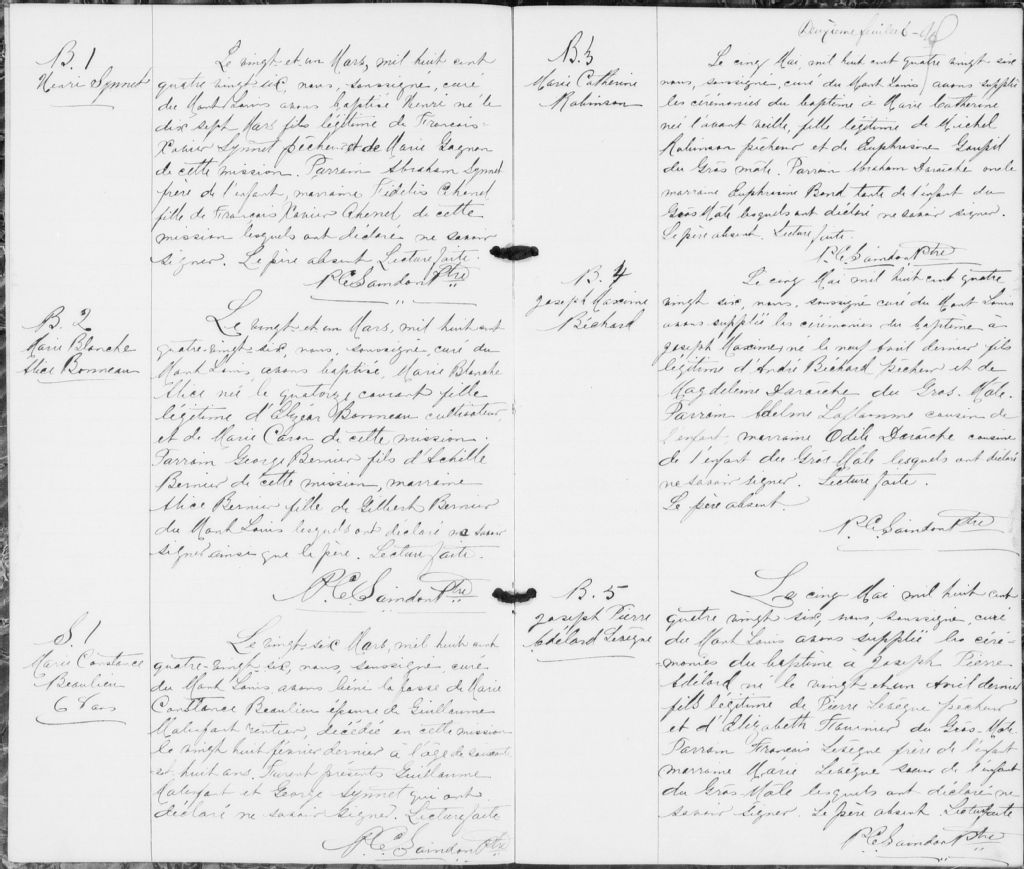 B. 1
Henri Synnet
Le vingt-et un Mars, mil huit cent
quatre vingt six, nous, soussigné, curé
du Mont Louis avons baptisé Henri né le
dix sept Mars fils légitime de François-
Xavier Synnet pêcheur et de Marie Gagnon
de cette mission. Parrain Abraham Synnet
frère de l'enfant, marraine Fidélis Chenel
fille de François Xavier Chenel de cette
mission lesquels ont déclaré ne savoir
signer. Le père absent Lecture faite.
P. C. Saindon Ptre
B. 2
Marie Blanche
Alice Bonneau
Le vingt-et un Mars, mil huit cent
quatre-vingt-six, nous, soussigné, curé du
Mont Louis avons baptisé Marie Blanche
Alice née le quatorze courant fille
légitime d'Elzéar Bonneau cultivateur
et de Marie Caron de cette mission.
Parrain George Bernier fils d'Achille
Bernier de cette mission, marraine
Alice Bernier fille de Gilbert Bernier
du Mont Louis lesquels ont déclaré ne savoir
signer ainsi que le père. Lecture faite.
P. C. Saindon Ptre
S. 1
Marie Constance
Beaulieu
ans
Le vingt-six Mars, mil huit cent
quatre-vingt six, nous, soussigné, curé
du Mont Louis avons béni la fosse de Marie
Constance Beaulieu épouse de Guillaume
rentier, décédée en cette mission
le vingt huit février dernier à l'âge de soixante
et huit ans. Furent présents Guillaume
et George Synnet qui ont
déclaré ne savoir signer. Lecture faite
P. C. Saindon Ptre
Deuxième feuillet
B. 3
Marie Catherine
Robinson
Le cinq Mai, mil huit cent quatre vingt six
nous, soussigné, curé du Mont Louis avons suppléé
les cérémonies du baptême à Marie Catherine
née l'avant veille, fille légitime de Michel
Robinson pêcheur et de Euphrosine Goupil
du Gros mâle. Parrain Abraham Daraîche oncle
marraine Euphrosine Bond tante de l'enfant du
Gros-Mâle lesquels ont déclaré ne savoir signer.
Le père absent. Lecture faite.
P. C. Saindon Ptre
B. 4
Joseph Maxime
Béchard
Le cinq Mai mil huit cent quatre-
vingt six, nous, soussigné curé du Mont Louis
avons suppléé les cérémonies du baptême à
Joseph Maxime, né le neuf Août dernier fils
légitime d'André Béchard pêcheur et de
Magdeleine Daraîche du Gros-Mâle.
Parrain Adelme Laflamme cousin de
l'enfant, marraine Odile Daraîche cousine
de l'enfant du Gros Mâle lesquels ont déclaré
ne savoir signer. Lecture faite.
Le père absent.
P. C. Saindon Ptre
B. 5
Joseph Pierre
Adélard Lévêque
Le cinq Mai mil huit cent
quatre vingt six, nous, soussigné, curé
du Mont Louis avons suppléé les céré-
monies du baptême à Joseph Pierre
Adélard né le vingt-et un Avril dernier
fils légitime de Pierre Lévêque pêcheur
et d'Elizabeth Fournier du Gros-Mâle
Parrain François Lévêque frère de l'enfant
marraine Marie Lévêque soeur de l'enfant
du Gros-Mâle lesquels ont déclaré ne
savoir signer. Le père absent. Lecture faite
P. C. Saindon Ptre